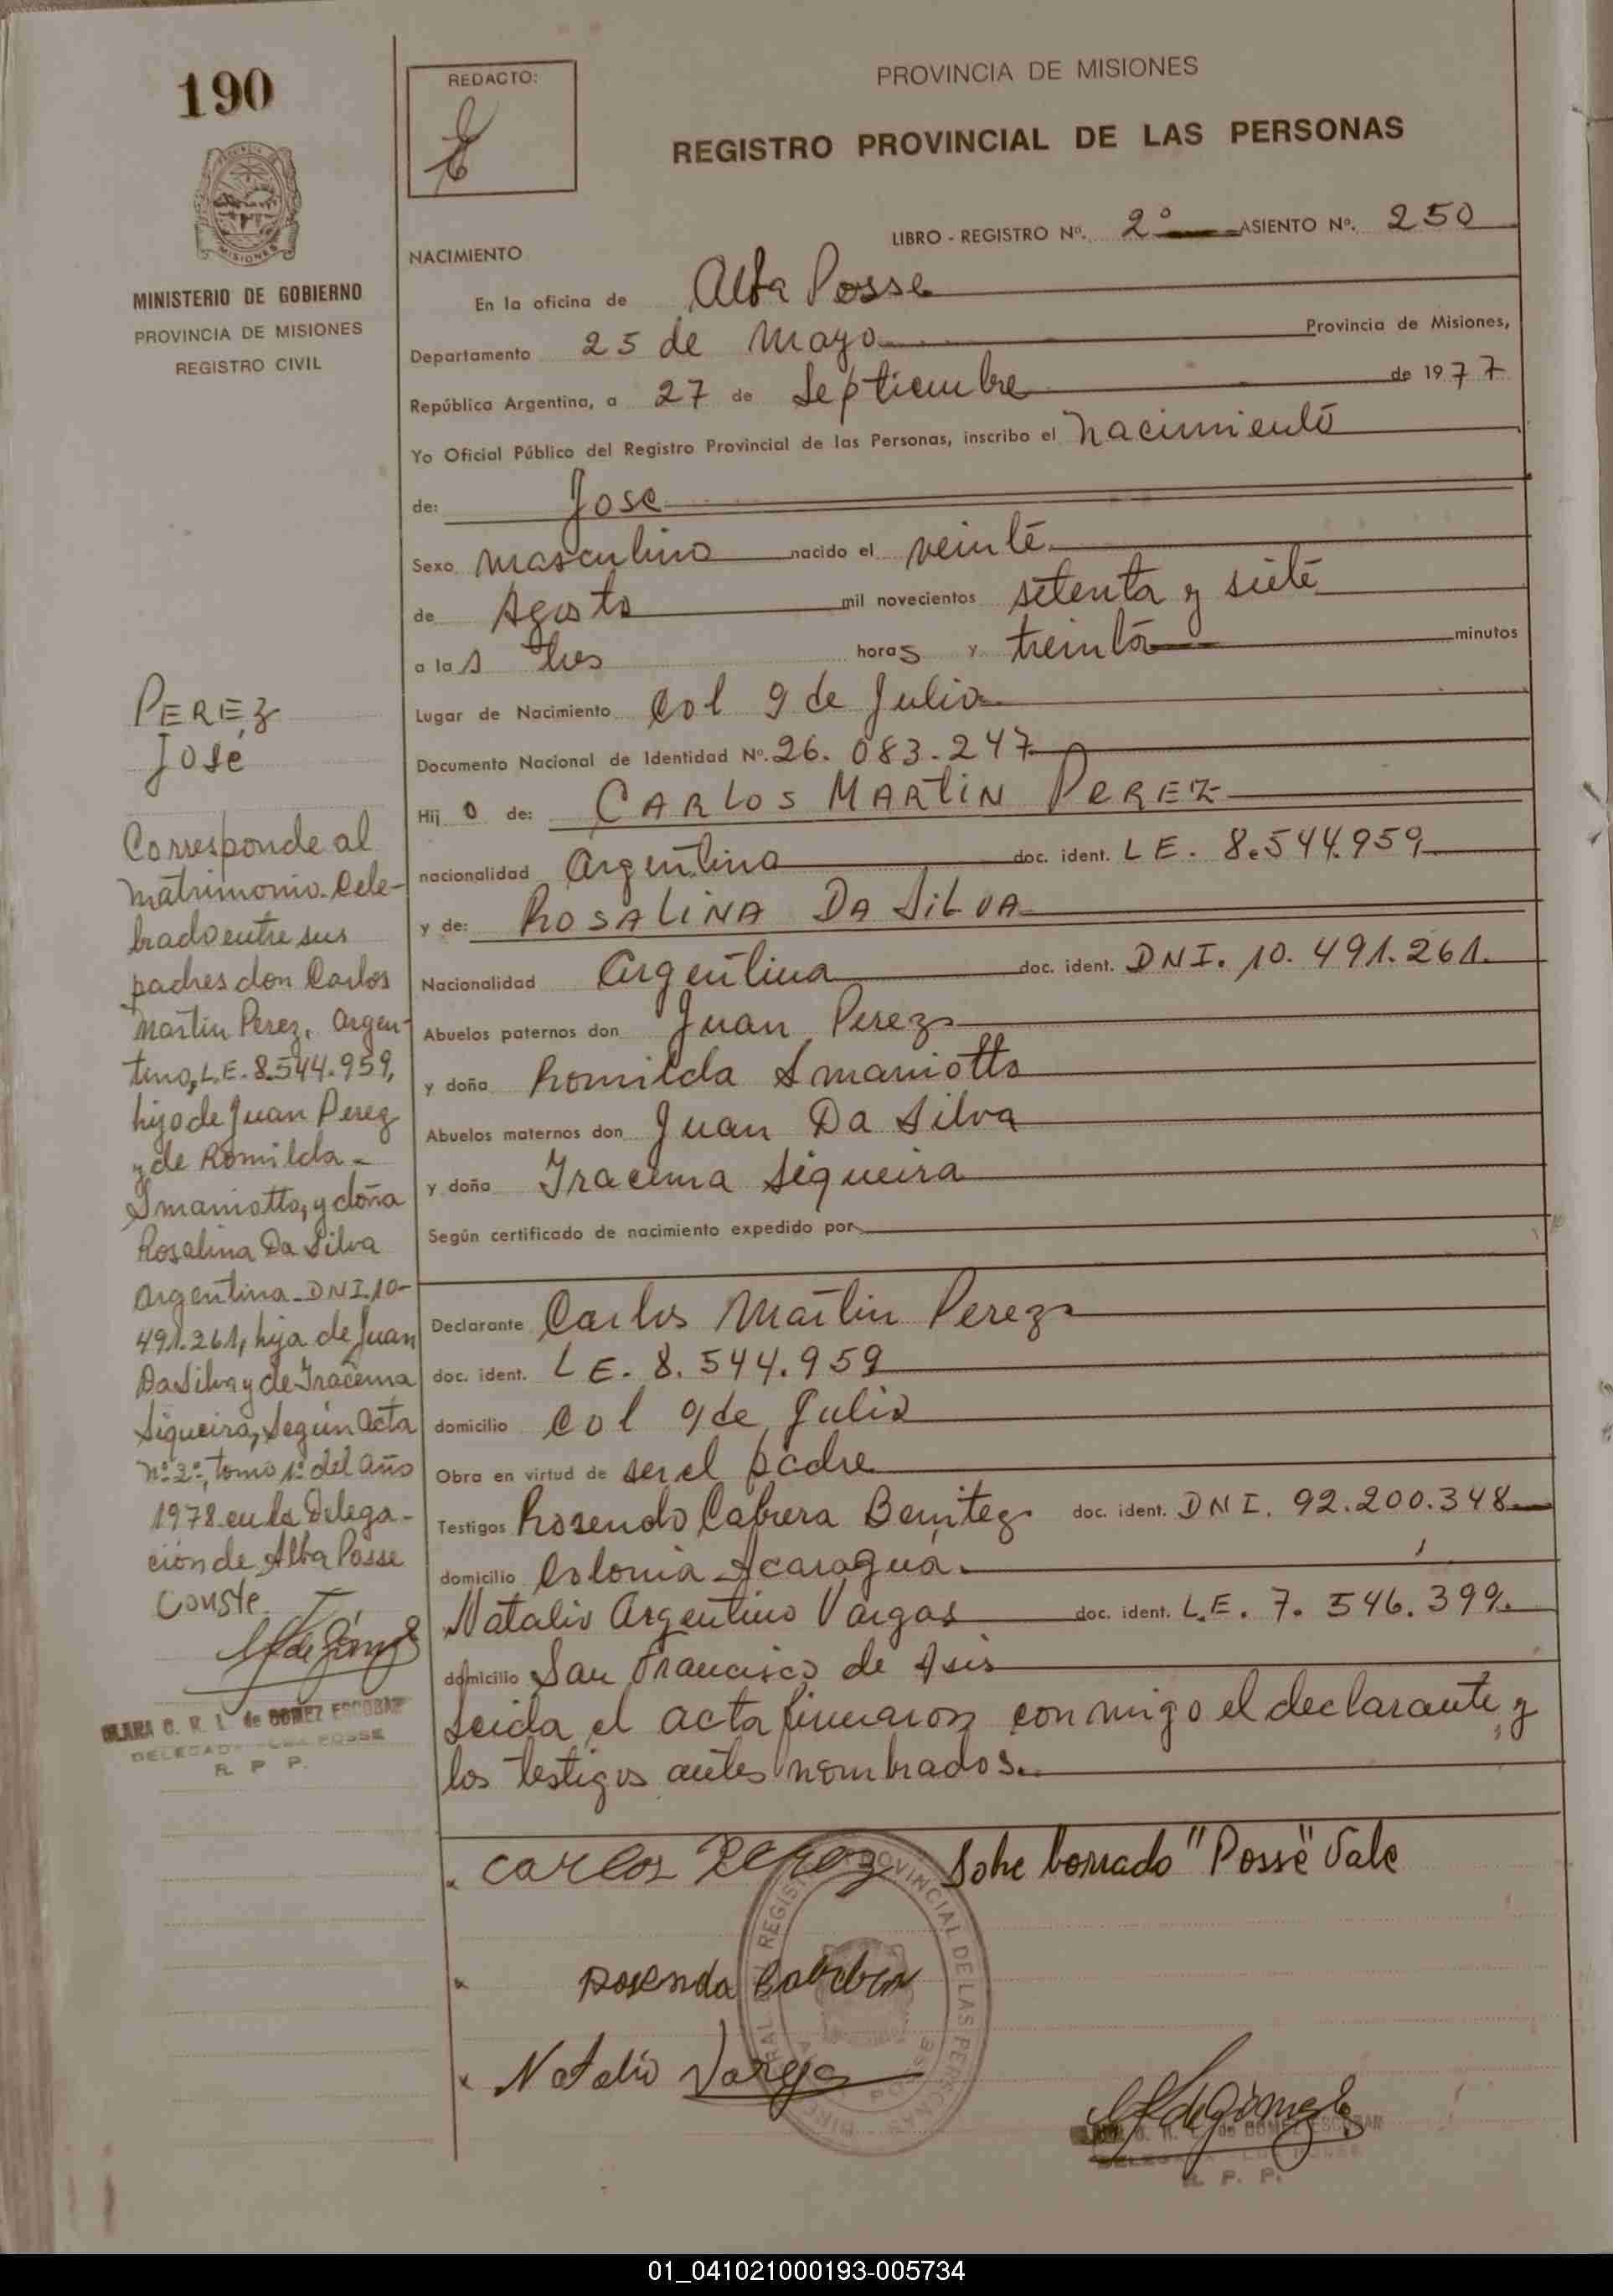 190
REDACTO:
PROVINCIA DE MISIONES
REGISTRO PROVINCIAL DE LAS PERSONAS
MISIONES
MINISTERIO DE GOBIERNO
PROVINCIA DE MISIONES
REGISTRO CIVIL
LIBRO - REGISTRO Nº. 2º ASIENTO Nº. 250
NACIMIENTO
En la oficina de Alba Posse
Departamento 25 de Mayo Provincia de Misiones,
República Argentina, a 27 de Septiembre de 1977
Yo Oficial Público del Registro Provincial de las Personas, inscribo el nacimiento
de: Jose
Sexo masculino nacido el veinte
de Agosto mil novecientos setenta y siete
a las tres horas y treinta minutos
Lugar de Nacimiento Col 9 de Julio
Documento Nacional de Identidad Nº. 26.083.247
Hijo de: CARLOS MARTIN PEREZ
nacionalidad Argentina doc. ident. LE. 8.544.959
y de: ROSALINA DA SILVA
Nacionalidad Argentina doc. ident. DNI. 10.491.261.
Abuelos paternos don Juan Perez
y doña Romilda Smaniotto
Abuelos maternos don Juan Da Silva
y doña Iracema Siqueira
Según certificado de nacimiento expedido por
Declarante Carlos Martin Perez
doc. ident. LE. 8.544.959
domicilio Col 9 de Julio
Obra en virtud de ser el padre
Testigos Rosendo Cabrera Benitez doc. ident. DNI. 92.200.348
domicilio Colonia Acaragua.
Natalio Argentino Vargas doc. ident. L.E. 7.546.399.
domicilio San Francisco de Asis
Leida el acta firmaron conmigo el declarante y
los testigos antes nombrados.
PEREZ
José
Corresponde al
matrimonio cele-
brado entre sus
padres don Carlos
Martin Perez, Argen-
tino, L.E. 8.544.959,
hijo de Juan Perez
y de Romilda
Smaniotto, y doña
Rosalina Da Silva
Argentina DNI.10-
491.261, hija de Juan
Da Silva y de Iracema
Siqueira, según acta
nº 2º, tomo 1º del año
1978 en la Delega-
ción de Alba Posse
Conste.
CLARA C. R. L. de GOMEZ ESCOBAR
DELEGADA ALBA POSSE
R. P. P.
Carlos Perez Sobre borrado "Posse" Vale
Rosendo Cabrera
Natalio Vargas
REGISTRO PROVINCIAL DE LAS PERSONAS
POSSE
C. R. L. de GOMEZ ESCOBAR
R. P. P.
01_041021000193-005734